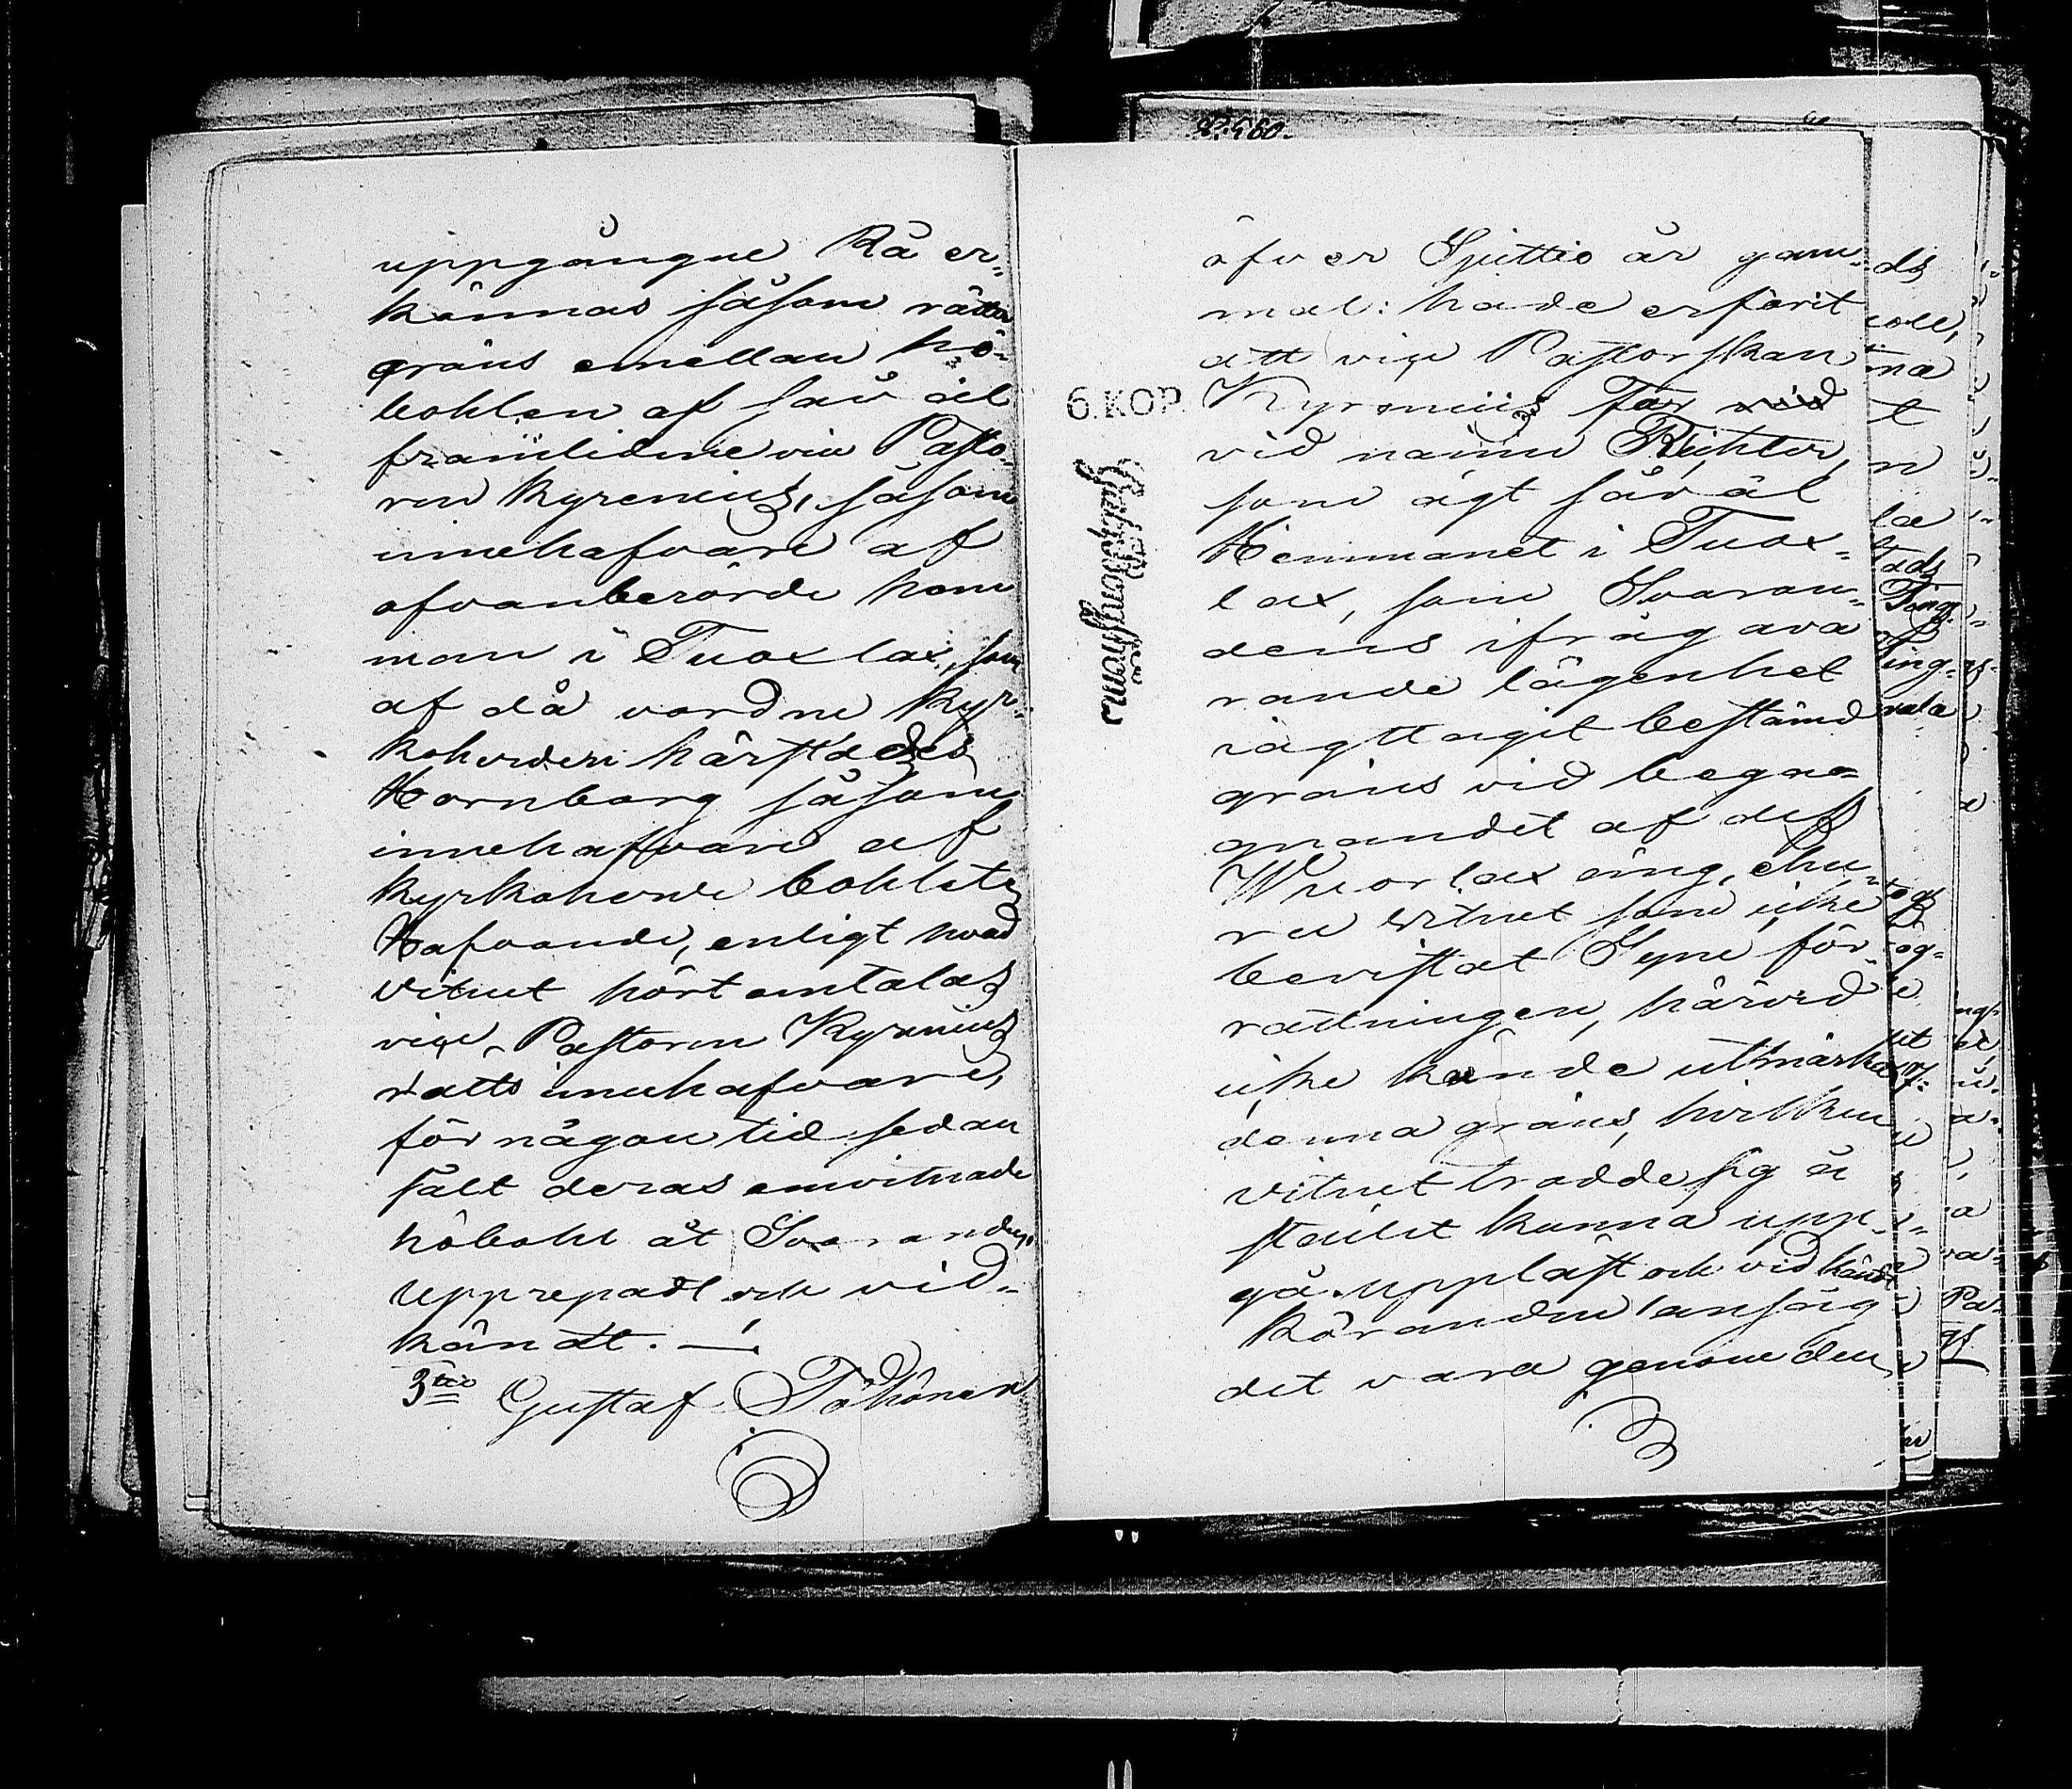 uppgångne Rå er-
kännas såsom rätta
gräns emellan hö-
bohlen af såväl
framlidne vice Pasto-
ren Kyrenius, såsom
innehafvare af
ofvanberörde hem
man i Tuoxlax, som
af då vordne Kyr-
koherden härstädes
Hornborg såsom
innehafvare af
Kyrkoherde bohlets
Hafvande, enligt hvad
vitnet hört omtalas
vice Pastoren Kyrenius
rätts innehafvare,
för någon tid sedan
sålt deras omvitnade
höbohl åt Svaranden.
Upprepadt och vid-
kändt. —
3tio Gustaf Töhönen
öfver Sjuttio år gam-
mal: hade erfarit
att vice Pastorskan
Kyrenius Far
vid namn Richter,
som ägt såväl
Hemmanet i Tuox-
lax, som Svaran-
dens ifrågava
rande lägenhet
iagttagit bestämd
gräns vid begag-
gnandet af dess
Wuorlax äng, ehu-
ru vitnet som icke
bevistat Syne för-
rättningen, härvid
icke kände utmärka
denna gräns, hvilken
vitnet trodde sig å
stället kunna upp-
gå. Uppläst och vidkändt
Käranden ansåg
det vara genom den
6. KOP.
92.560.
ds
na
t
n
la
tads
Ting-
rala
Pa-